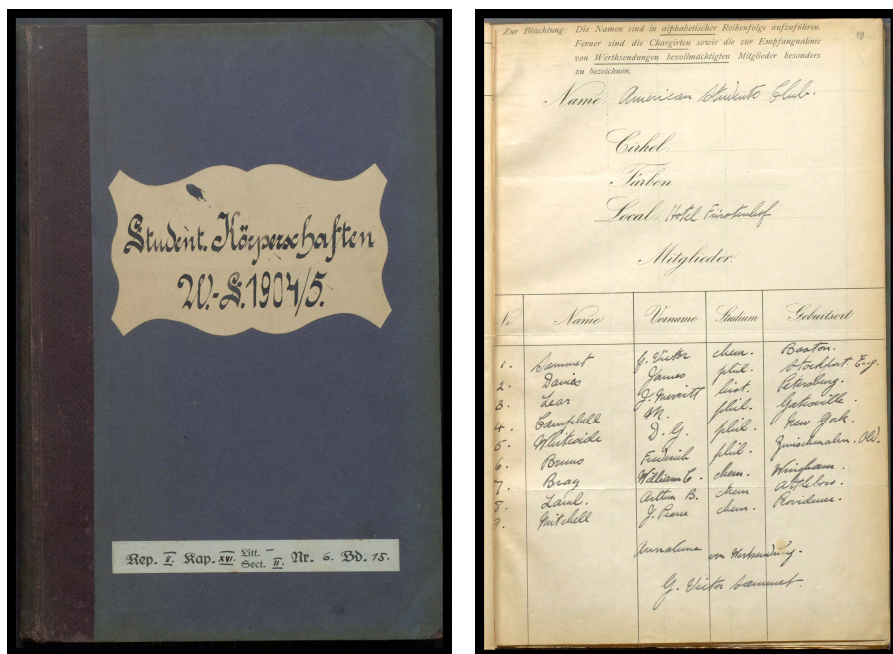 Student. Körperschaften
W.-S. 1904/5.
Rep. II. Kap. XVI. Litt. – Sect. II. Nr. 6. Bd. 15.
10
Zur Beachtung: Die Namen sind in alphabetischer Reihenfolge aufzuführen.
Ferner sind die Chargirten sowie die zur Empfangnahme
von Werthsendungen bevollmächtigten Mitglieder besonders
zu bezeichnen.
Name: American Students Club.
Cirkel
Farben
Local: Hotel Fürstenhof
Mitglieder.
Nr. Name Vorname Studium Geburtsort
1. Sammet G. Victor chem. Boston.
2. Davies James phil. Stockport Eng.
3. Lear J. Merritt hist. Petersburg.
4. Campbell M. phil. Gatesville.
5. Whiteside D. G. phil. New York.
6. Bruns Friedrich phil. Zwischenahn. Old.
7. Bray William C. chem. Wingham.
8. Lamb. Arthur B. chem Attleboro.
9. Mitchell J. Pearce chem. Providence.
Annahme von Wertsendung.
G. Victor Sammet.